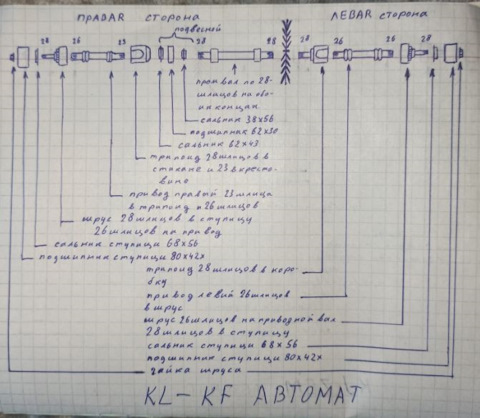 ПРАВАЯ сторона
ЛЕВАЯ сторона
подвесной
28 26 23 28 28 28 26 26 28
промвал по 28
шлицов на обо-
их концах
сальник 38х56
подшипник 62х30
сальник 62х43
трипоид 28 шлицов в
стакане и 23 в кресто-
вине
привод правый 23 шлица
в трипоид и 26 шлицов
шрус 28 шлицов в ступицу
26 шлицов на привод
сальник ступицы 68х56
подшипник ступицы 80х42х
трипоид 28 шлицов в коро-
бку
привод левый 26 шлицов
в шрус
шрус 26 шлицов на приводной вал
28 шлицов в ступицу
сальник ступицы 68х56
подшипник ступицы 80х42х
гайка шруса
KL-KF АВТОМАТ